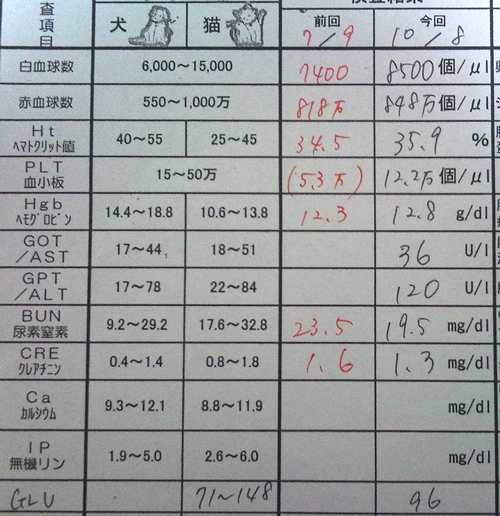 査項目 犬 猫 前回 7/9 今回 10/8
白血球数 6,000～15,000 7400 8500 個/μl
赤血球数 550～1,000万 818万 848万 個/μl
Ht ﾍﾏﾄｸﾘｯﾄ値 40～55 25～45 34.5 35.9 %
PLT 血小板 15～50万 (5.3万) 12.2万 個/μl
Hgb ﾍﾓｸﾞﾛﾋﾞﾝ 14.4～18.8 10.6～13.8 12.3 12.8 g/dl
GOT/AST 17～44 18～51 36 U/l
GPT/ALT 17～78 22～84 120 U/l
BUN 尿素窒素 9.2～29.2 17.6～32.8 23.5 19.5 mg/dl
CRE ｸﾚｱﾁﾆﾝ 0.4～1.4 0.8～1.8 1.6 1.3 mg/dl
Ca ｶﾙｼｳﾑ 9.3～12.1 8.8～11.9 mg/dl
IP 無機リン 1.9～5.0 2.6～6.0 mg/dl
GLU 71～148 96